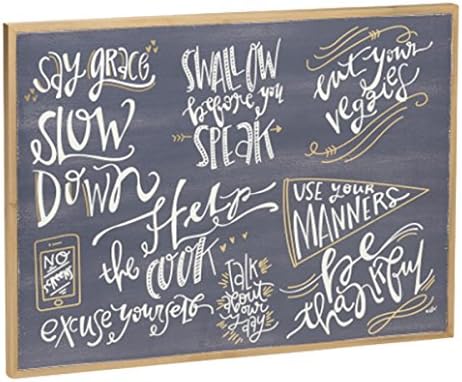 Say grace
SLOW
DOWN
SWALLOW
before you
SPEAK
eat your
veggies
Help
the COOK
USE YOUR
MANNERS
NO
SCREENS
excuse yourself
Talk
about
your
day
be
thankful